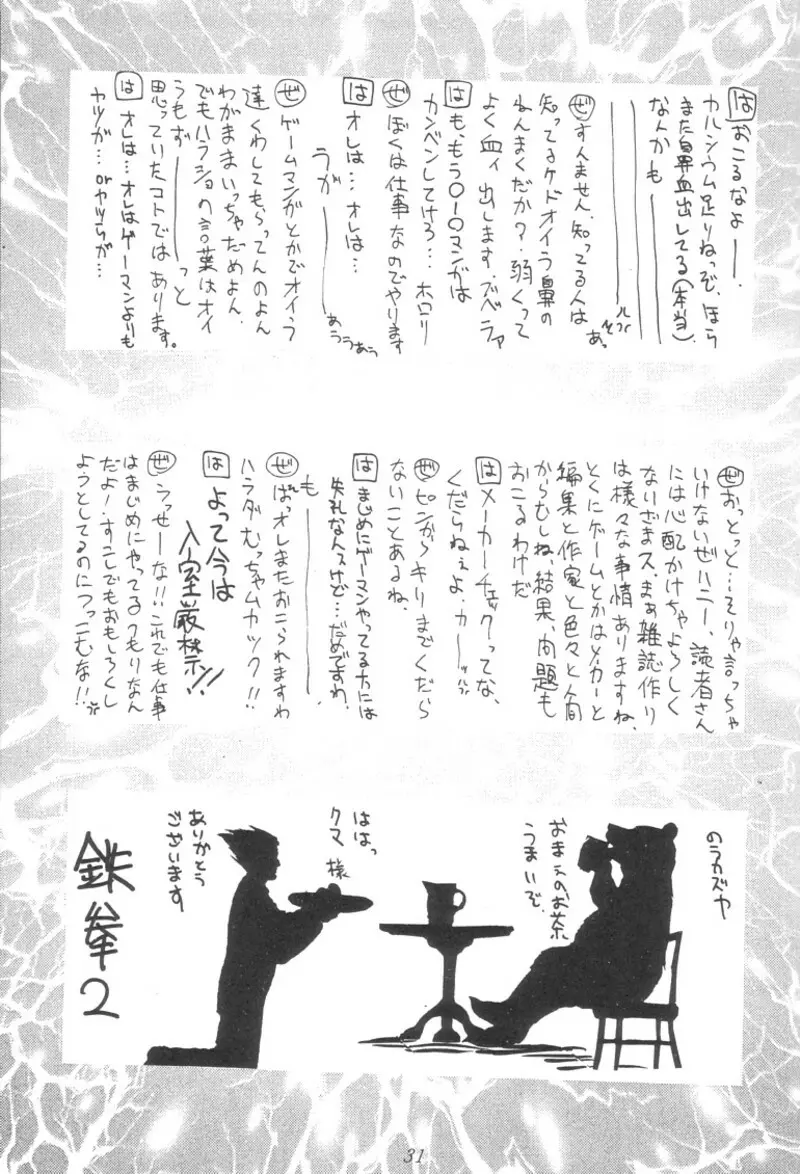 は おこるなよ――.
カルシウム足りねっぞ、ほら
また鼻血出してる(本当)
なんかも――
ぜ すんません、知ってる人は
知ってるケドオイラ鼻の
ねんまくだか?弱くって
よく血ィ出します.ブベラァ
は も、もう〇ー〇マンがは
カンベンしてけろ… ホロリ
ぜ ぼくは仕事なのでやります
は オレは… オレは…
うが――
あううあう
ぜ ゲームマンがとかでオイラ
達くわしてもらってんのよん
わがままいっちゃだめよん.
でもハラショの言葉はオイ
うもず――っと
思っていたコトではあります。
は オレは…オレはゲーマンよりも
ヤツが… orヤツらが…
ぜ おっとっと…そりゃ言っちゃ
いけないぜハニー、読者さん
には心配かけちゃよろしく
ないざまス、まぁ雑誌作り
は様々な事情ありますね、
とくにゲームとかはメーカーと
編集と作家と色々と人間
からむしね、結果、問題も
おこるわけだ
は メーカーチェックってな、
くだらねぇよ、カーッ
ぜ ピンからキリまでくだら
ないことあるね、
は まじめにゲーマンやってる方には
失礼な人スけど…だめですわ、
も――
ぜ ばっオレまたおこられますわ
ハラダむっちゃムカツク!!
は よって今は
入室厳禁!!
ぜ うっせーな!!これでも仕事
はまじめにやってるつもりなん
だよ!すこしでもおもしろくし
ようとしてるのにつっこむな!!
のラカズヤ
おまえのお茶
うまいぞ、
ははっ
クマ様
ありがとう
ございます
鉄拳2
31